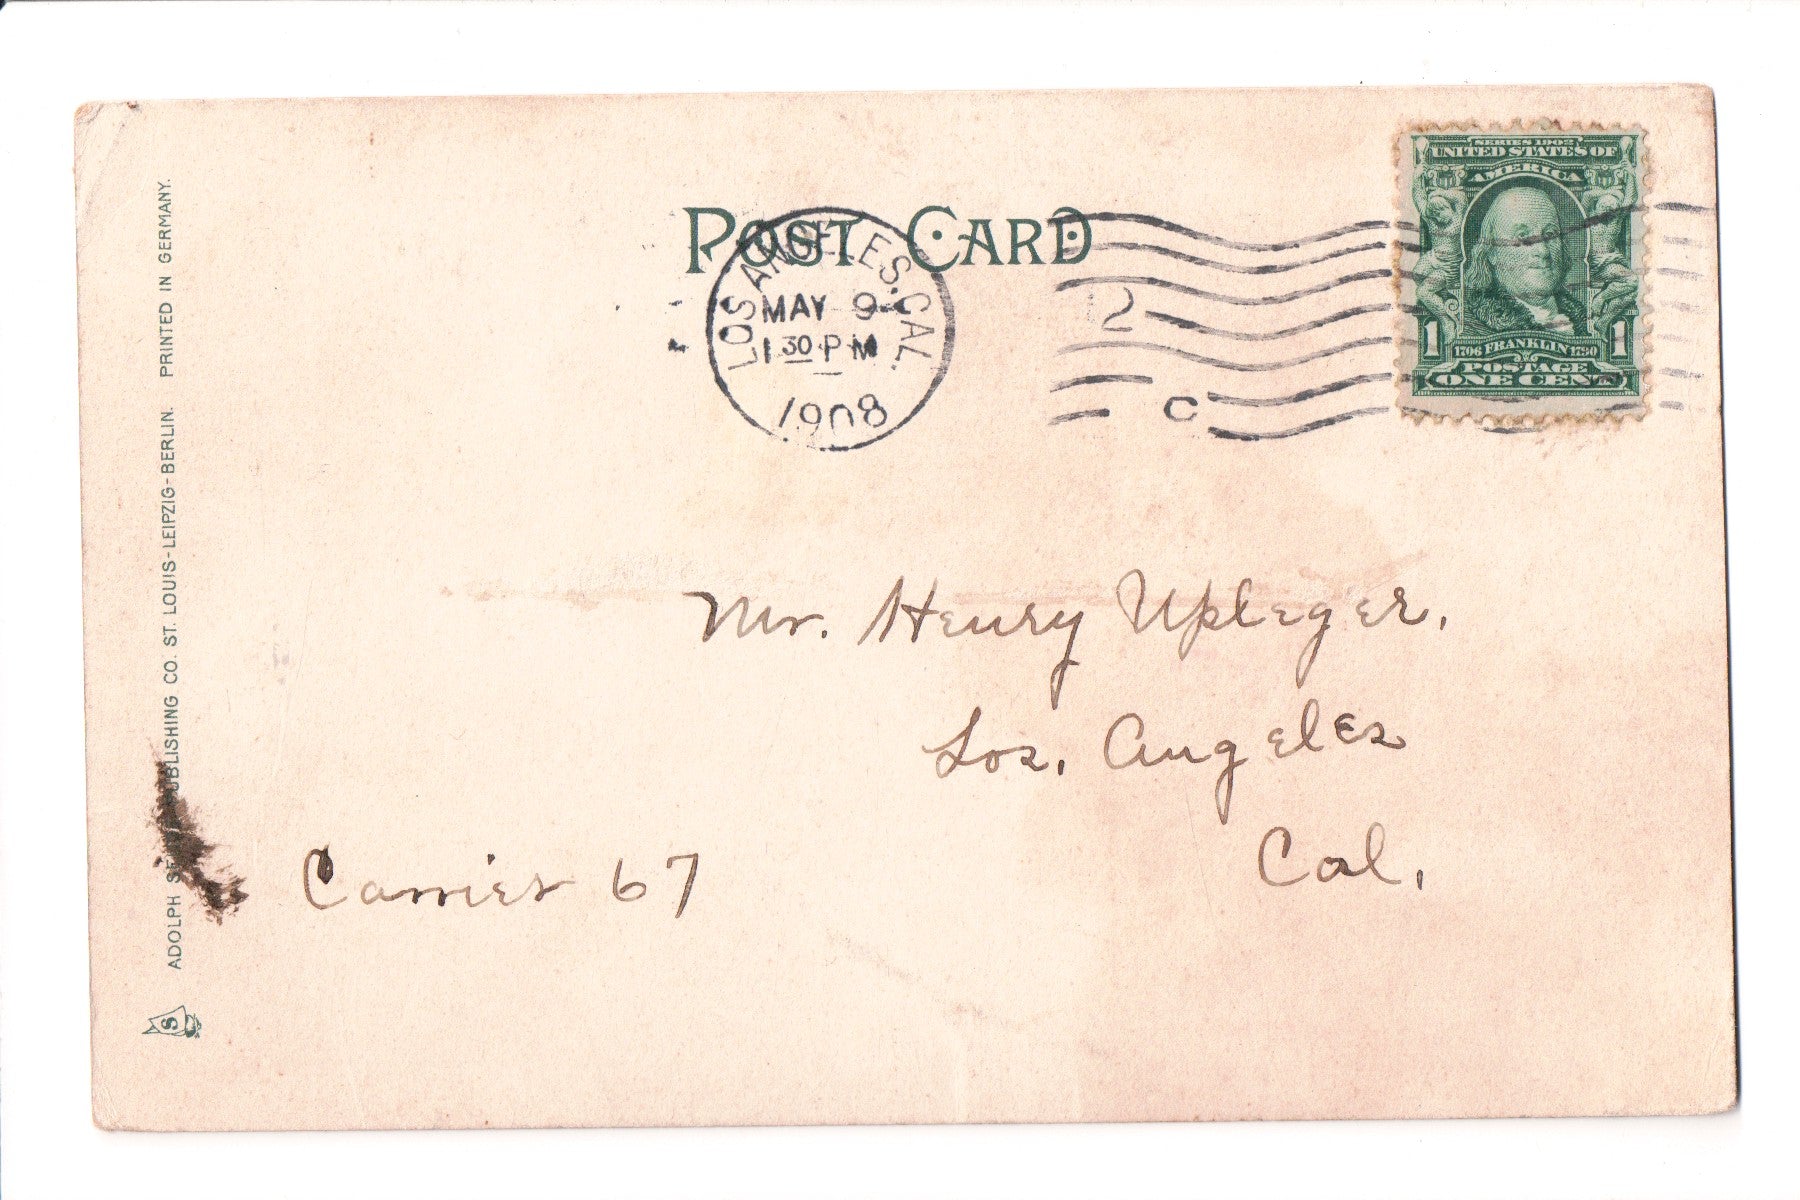 POST CARD
LOS ANGELES. CAL.
MAY 9
1 30 P M
1908
2
C
SERIES 1902
UNITED STATES OF
AMERICA
1 1
1706 FRANKLIN 1790
POSTAGE
ONE CENT
Mr. Henry Upleger.
Los. Angeles
Cal.
Carrier 67
ADOLPH PUBLISHING CO. ST. LOUIS-LEIPZIG-BERLIN. PRINTED IN GERMANY.
S